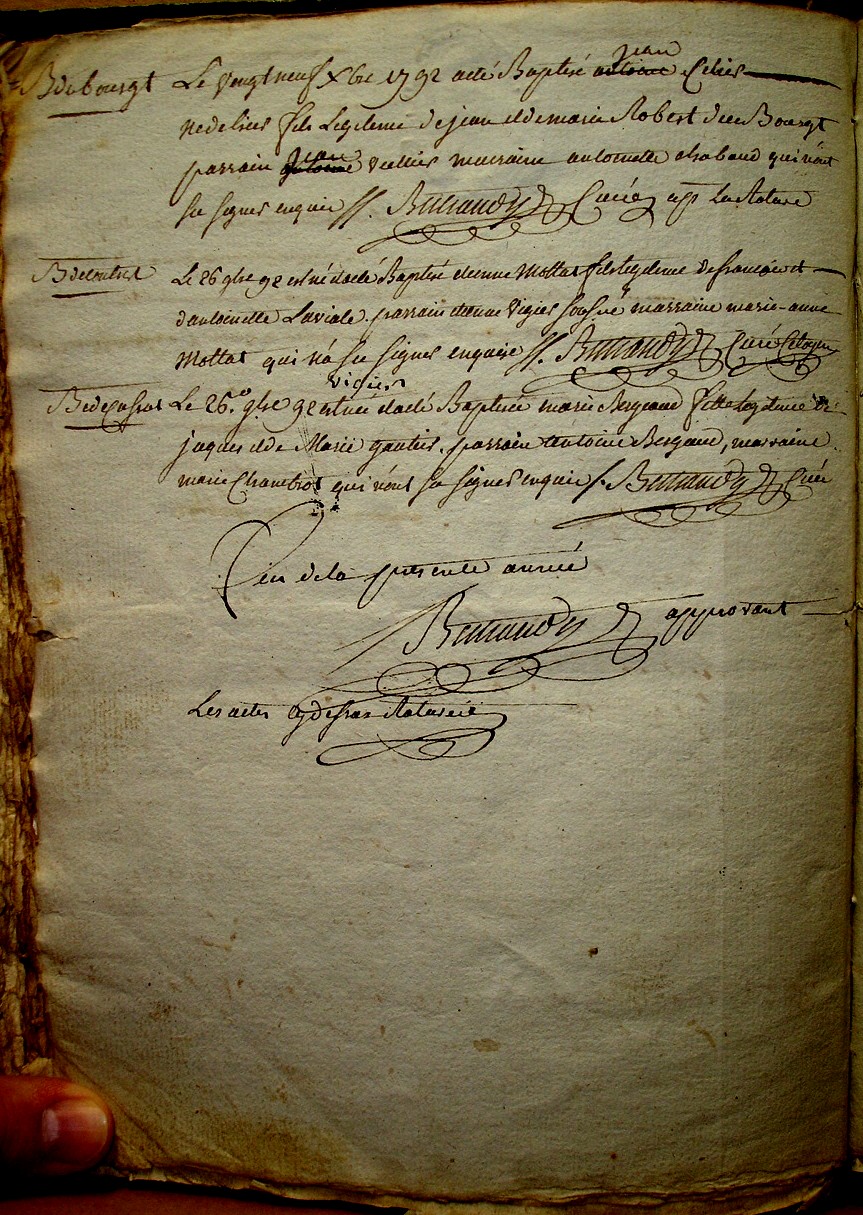 B du bourgt Le Vingt neuf Xbre 1792 acté Baptisé jean antoine Celier
né de hier fils Legiteme de jean et de marie Robert du Bourgt
parrain jean antoine marraine antoinette chabaud qui n'ont
su signer enquis Bertrandy Curé app La Rature
B Le 26 9bre 92 est né et a eté Baptisé etienne Mottat fils legiteme de francois et
d'antoinette Laviale. parrain etienne Vigier marraine marie-anne
Mottat qui n'a su signer enquise Bertrandy Curé Citoyen
Vigier
B Le 26. 9bre 92 est née et a eté Baptisée marie Bergeaud fille Legiteme de
jaques et de Marie gautier. parrain antoine Bergeaud, marraine
marie Chambrot qui n'ont su signer enquis Bertrandy Curé
fin de la presente année
Bertrandy approuvant
Les actes cy dessus Raturée